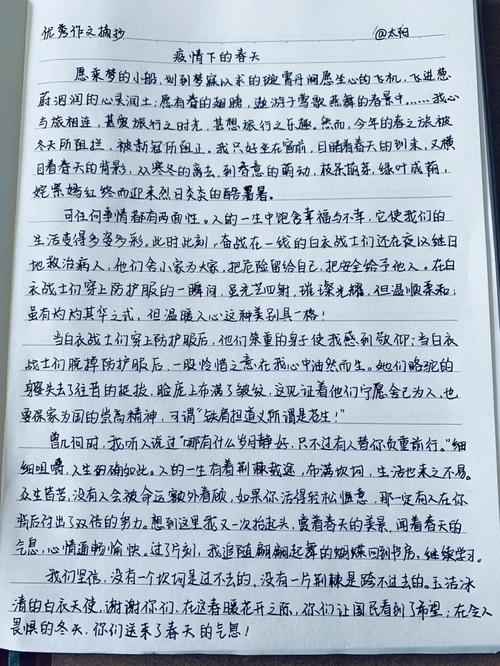 优秀作文摘抄 @太阳
疫情下的春天
愿乘梦的小船,划到梦寐以求的璇霄丹阙愿生心的飞机,飞进葱
蔚洇润的心灵润土;愿有春的翅膀,遨游于莺歌燕舞的春景中……我心
与旅相连,甚爱旅行之时光,甚想旅行之乐趣。然而,今年的春之旅被
冬天所阻拦,被新冠所阻止。我只好坐在窗前,目睹着春天的到来,又横
目着春天的背影,从寒冬的离去,到春意的萌动,枝条萌芽,绿叶成荫,
姹紫嫣红终而迎来烈日炎炎的酷暑暑。
可任何事情都有两面性。人的一生中饱含幸福与不幸,它使我们的
生活变得多姿多彩。此时此刻,奋战在一线的白衣战士们还在夜以继日
地救治病人,他们舍小家为大家,把危险留给自己,把安全给予他人。在白
衣战士们穿上防护服的一瞬间,虽光芒四射,璀璨光耀,但温顺柔和;
虽有灼灼其华之式,但温暖人心这种美别具一格!
当白衣战士们穿上防护服后,他们笨重的身子使我感到敬仰;当白衣
战士们脱掉防护服后,一股怜惜之意在我心中油然而生。她们略驼的
身躯失去了往昔的挺拔,脸庞上布满了皱纹,这见证着他们宁愿舍己为人,也
要保家为国的崇高精神,可谓“铁肩担道义所谓是苍生!”
曾几何时,我听人说过“哪有什么岁月静好,只不过有人替你负重前行。”细
细咀嚼,人生的确如此。人的一生有着荆棘载途,布满坎坷,生活也来之不易。
众生皆苦,没有人会被命运额外眷顾,如果你活得轻松惬意,那一定有人在你
背后付出了双倍的努力。想到这里我又一次抬起头,赏着春天的美景,闻着春天的
气息,心情通畅愉快。过了片刻,我追随翩翩起舞的蝴蝶回到书房,继续学习。
我们坚信,没有一个坎坷是过不去的,没有一片荆棘是跨不过去的。玉洁冰
清的白衣天使,谢谢你们,在这春暖花开之际,你们让国民看到了希望;在令人
畏惧的冬天,你们送来了春天的气息!